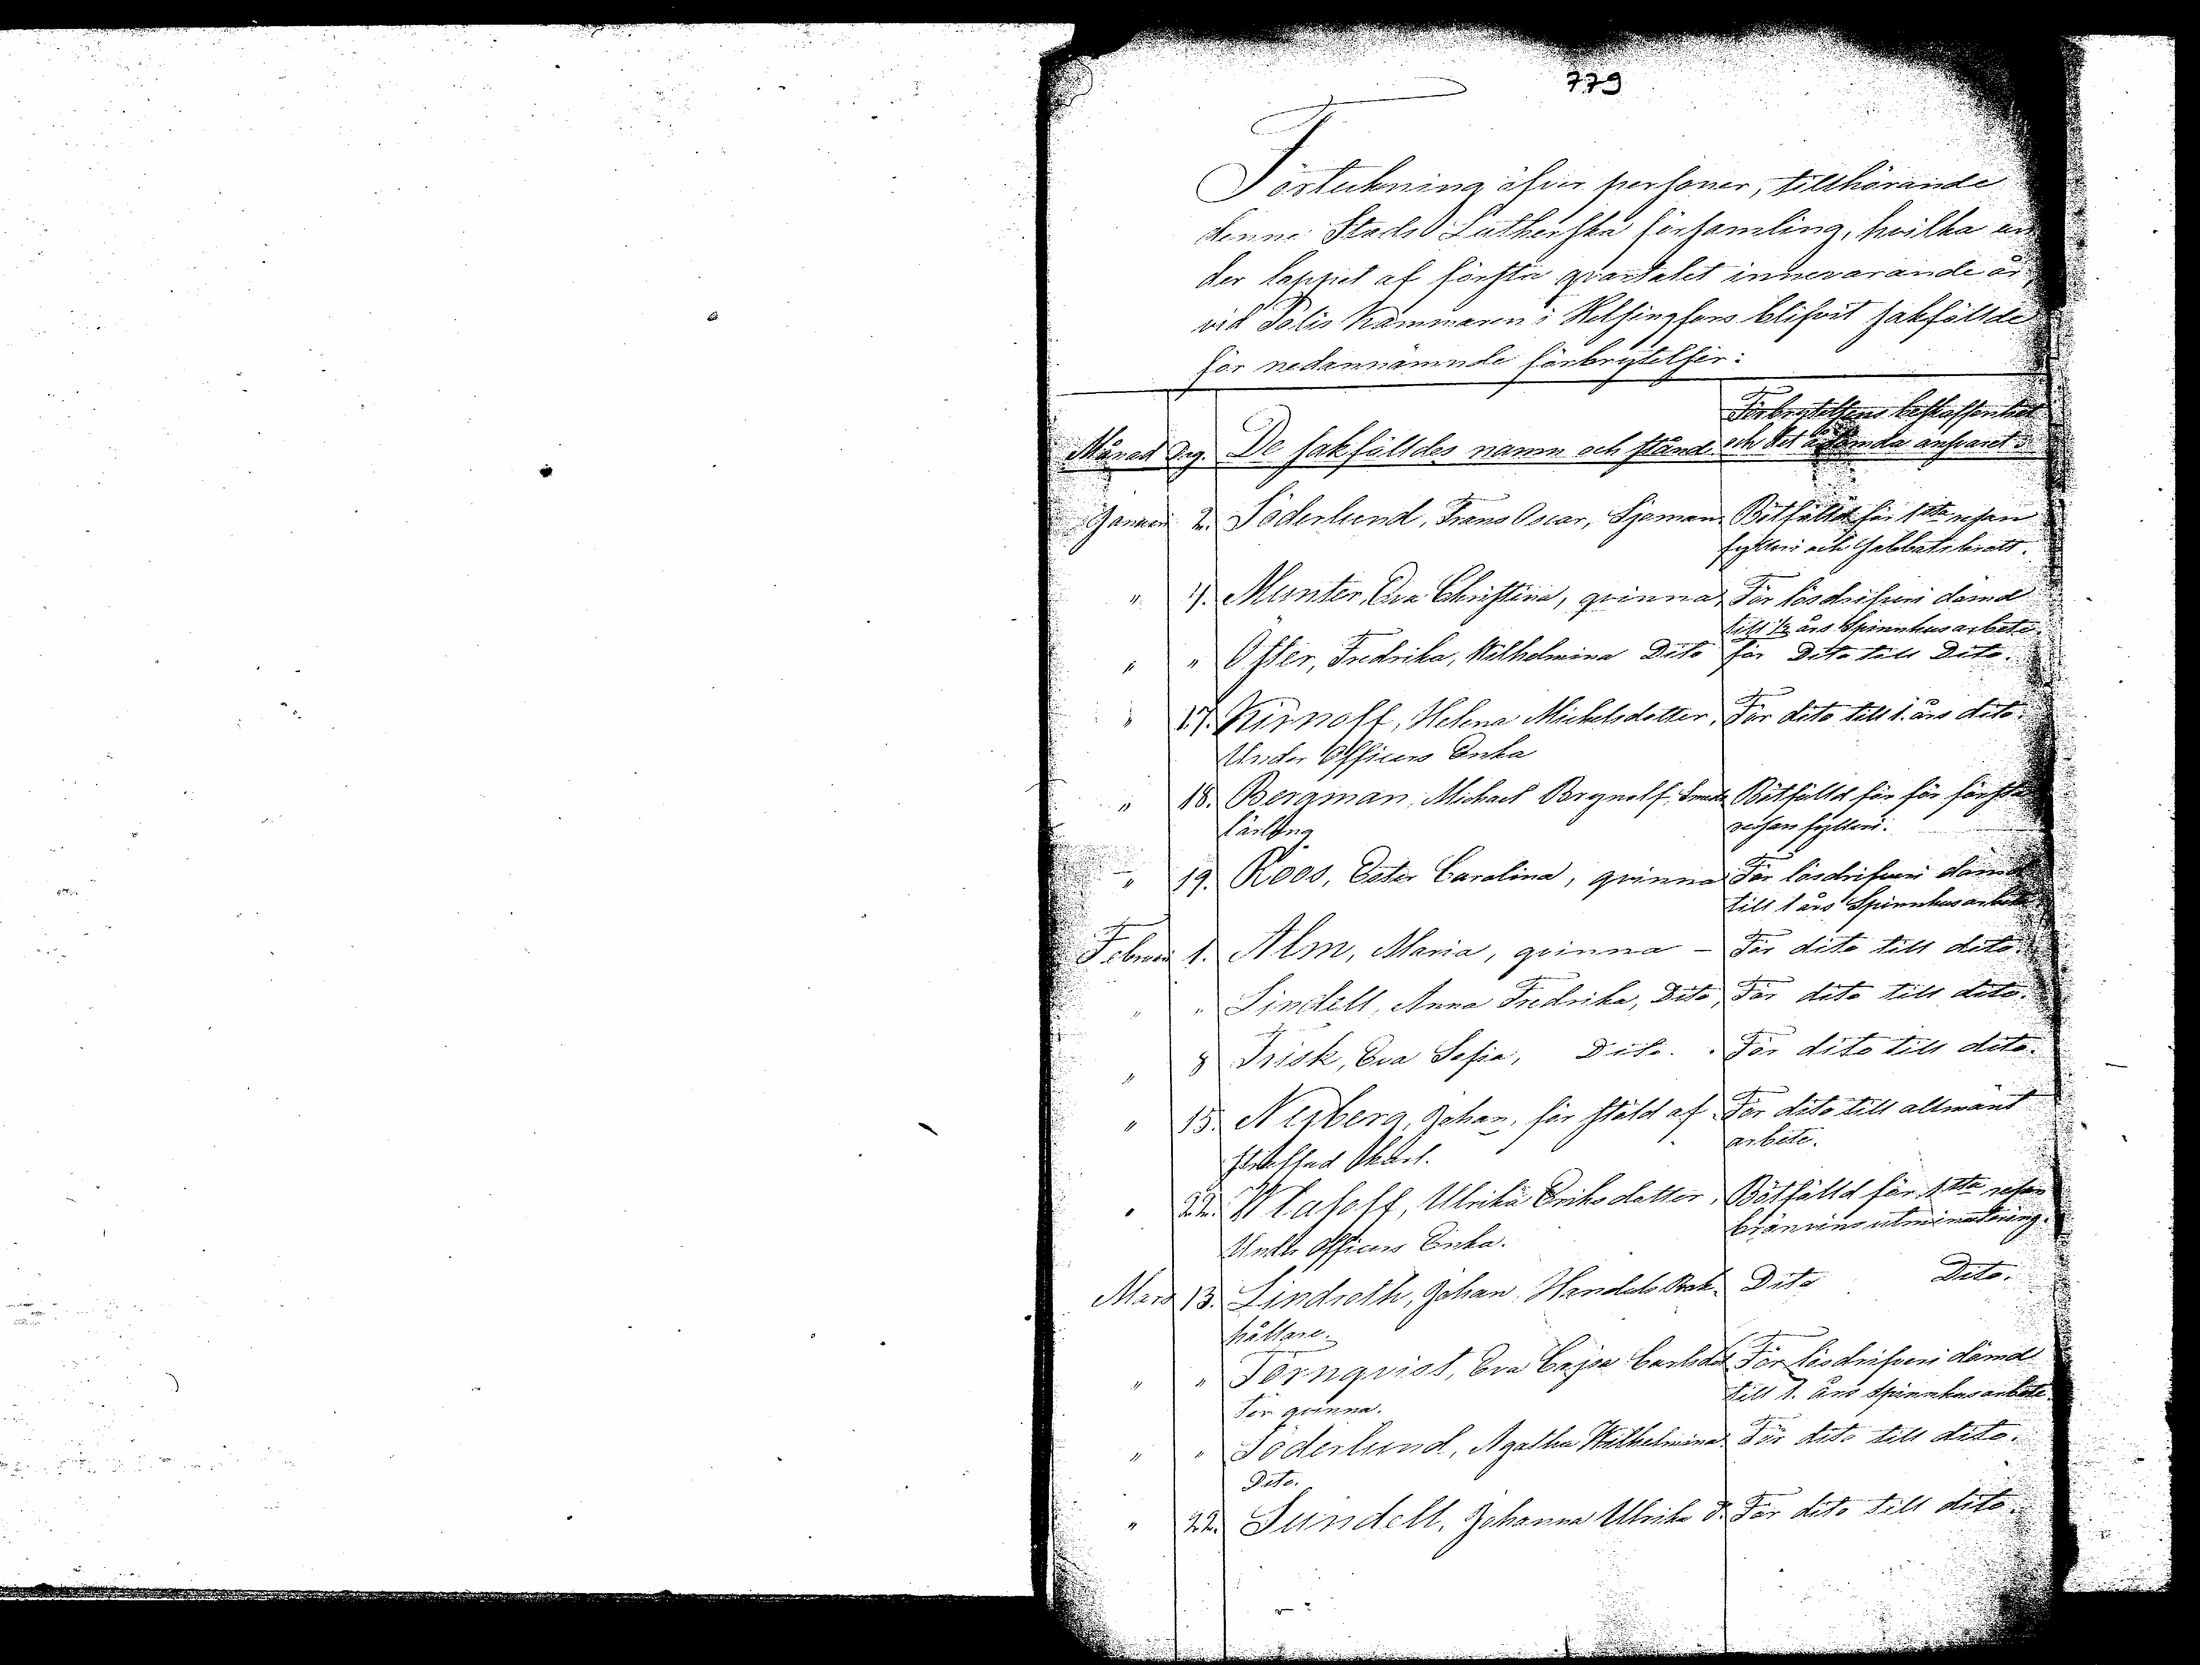 779
Förteckning öfver personer, tillhörande
denne Stads Lutherska församling, hvilka un
der loppet af första qvartalet innevarande år
vid Polis Kammaren i Helsingfors blifvit sakfällde
för nedannämnde förbrytelser:
Månad Dag. De sakfälldes namn och stånd. Förbrytelsens beskaffenhet
och det ådömda ansvaret:
Januari 2. Söderlund, Frans Oscar, Sjöman Bötfälld för 1sta resan
fylleri och Sabbatsbrott.
" 4. Munter, Eva Christina, qvinna, För lösdrifveri dömd
till 1/2 års Spinnhusarbete.
" " Öster, Fredrika, Wilhelmina Dito för Dito till Dito.
" 17. Kirnoff, Helena Mickelsdotter, För dito till 1. års dito.
Under Officers Enka
" 18. Bergman, Michael Brynolf, Bötfälld för för första
lärling resan fylleri.
" 19. Roos, Ester Carolina, qvinna För lösdrifveri dömd
till 1 års Spinnhusarbete
Februari 1. Alm, Maria, qvinna - För dito till dito.
" " Lindell, Anna Fredrika, Dito, För dito till dito.
" 8 Frisk, Eva Sofia, Dito. För dito till dito.
" 15. Nyberg, Johan, för stöld af För dito till allmänt
straffad karl. arbete.
" 22. Wlasoff, Ulrika Eriksdotter, Bötfälld för 1sta resan
Under Officers Enka. bränvins utminutering.
Mars 13. Lindroth, Johan Handels Bok- Dito Dito.
hållare.
" " Törnqvist, Eva Cajsa Carlsdot För lösdrifveri dömd
ter qvinna. till 1. års Spinnhusarbete.
" " Söderlund, Agatha Wilhelmina För dito till dito.
Dito.
" 22. Sundell, Johanna Ulrika D. För dito till dito.